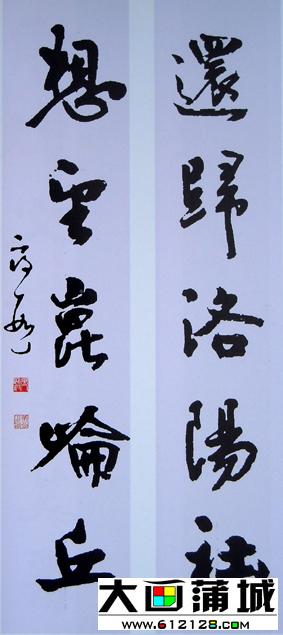 還歸洛陽社
想望崑崘丘
大画蒲城
www.612128.com